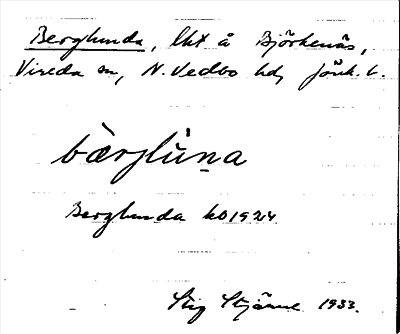 Berglunda, lht å Björkenäs,
Vireda sn, N. Vedbo hd, Jönk. l.
bærglùna
Berglunda ko 1924
Stig Stjärne 1933.